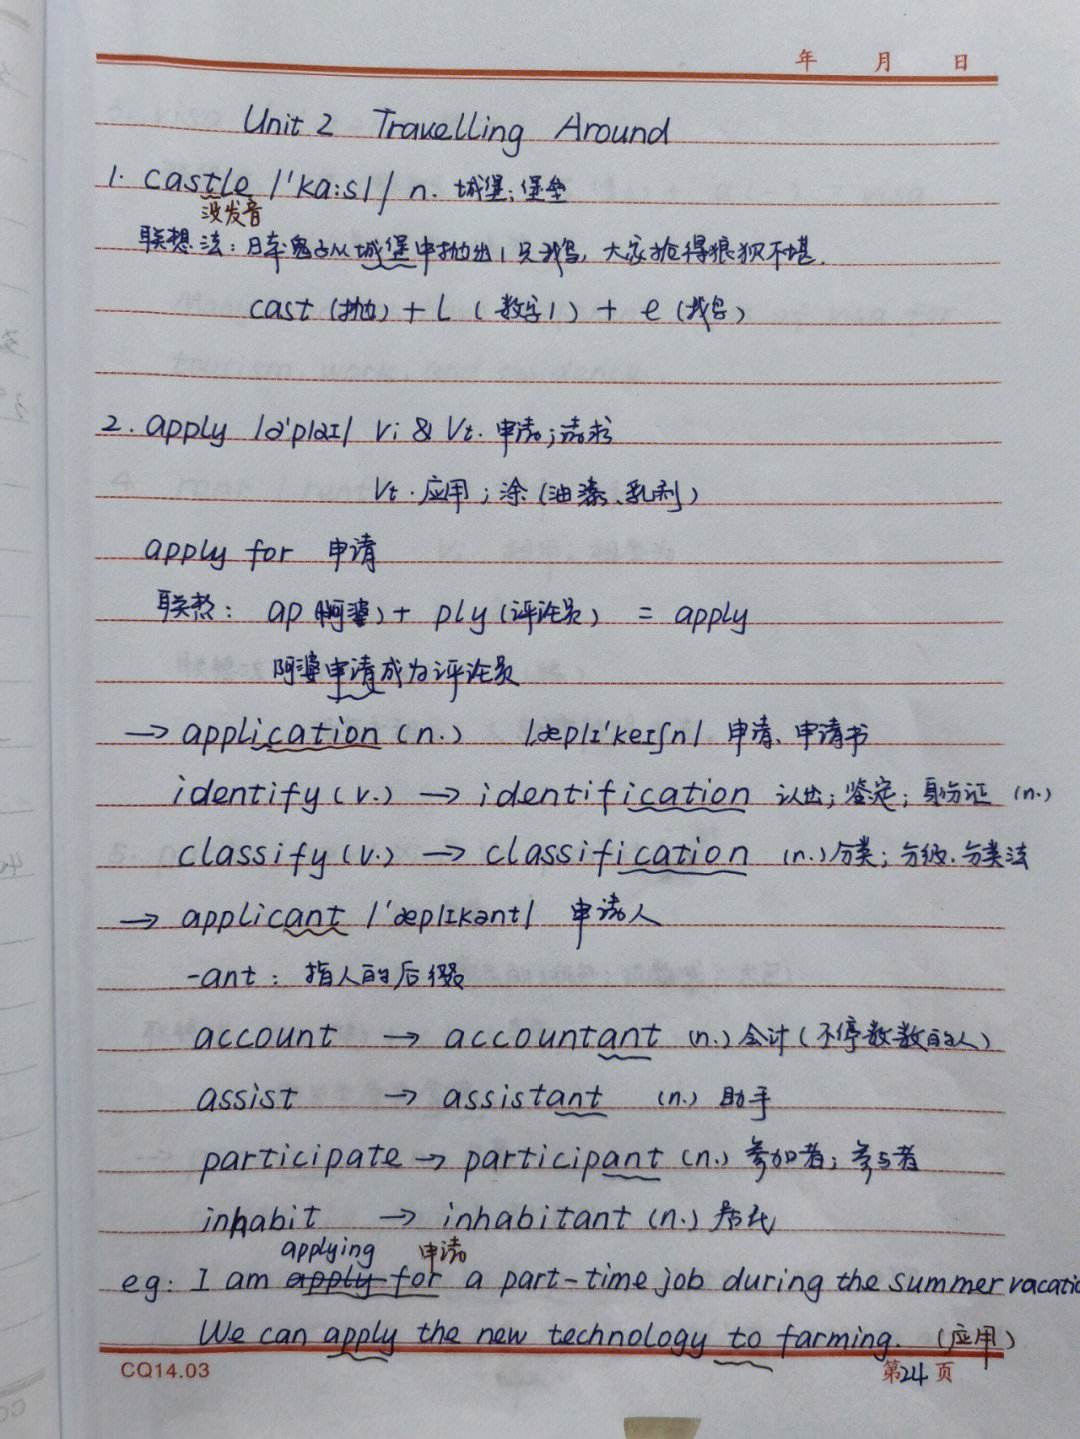 年 月 日
Unit 2 Travelling Around
1. castle /'ka:sl/ n. 城堡;堡垒
没发音
联想法:日本鬼子从城堡中抛出1只鹅,大家抢得狼狈不堪.
cast (抛) + L (数字1) + e (鹅)
2. apply /ə'plaɪ/ vi & vt. 申请;请求
Vt. 应用;涂(油漆、乳剂)
apply for 申请
联想: ap (阿婆) + ply (评论员) = apply
阿婆申请成为评论员
→ application (n.) /æplɪ'keɪʃn/. 申请、申请书
identify (v.) → identification 认出;鉴定;身份证 (n.)
classify (v.) → classification (n.) 分类;分级、分类法
→ applicant /'æplɪkənt/ 申请人
-ant: 指人的后缀
account → accountant (n.) 会计(不停数数的人)
assist → assistant (n.) 助手
participate → participant (n.) 参加者;参与者
inhabit → inhabitant (n.) 居民
applying 申请
eg: I am apply for a part-time job during the summer vacatio
We can apply the new technology to farming. (应用)
CQ14.03 第24页